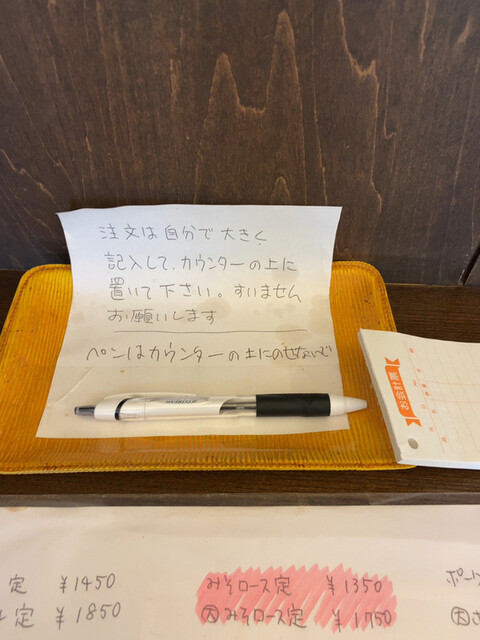 注文は自分で大きく
記入して、カウンターの上に
置いて下さい。すいません
お願いします
ペンはカウンターの上にのせないで
お会計票
定 ¥1450
定 ¥1850
みそロース定 ¥1350
大みそロース定 ¥1750
ポー
大